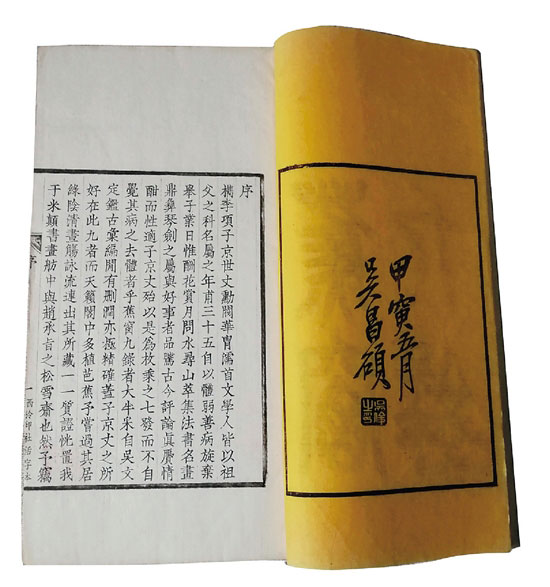 甲寅五月
吳昌碩
序
檇李項子京世丈勳閥華冑濡首文學人皆以祖
父之科名屬之年甫三十五自以體弱善病旋棄
舉子業日惟酬花賞月問水尋山萃集法書名畫
鼎彝琴劍之屬與好事者品騭古今評論眞贗情
酣而性適子京丈殆以是爲枚乘之七發而不自
覺其病之去體者乎蕉窗九錄者大半采自吳文
定鑑古彙編閒有刪潤亦極精確蓋子京丈之所
好在此九者而天籟閣中多植芭蕉予嘗過其居
綠陰清晝觴詠流連出其所藏一一質證恍置我
于米顛書畫舫中與趙承旨之松雪齋也然予竊
序
一
西泠印社活字本